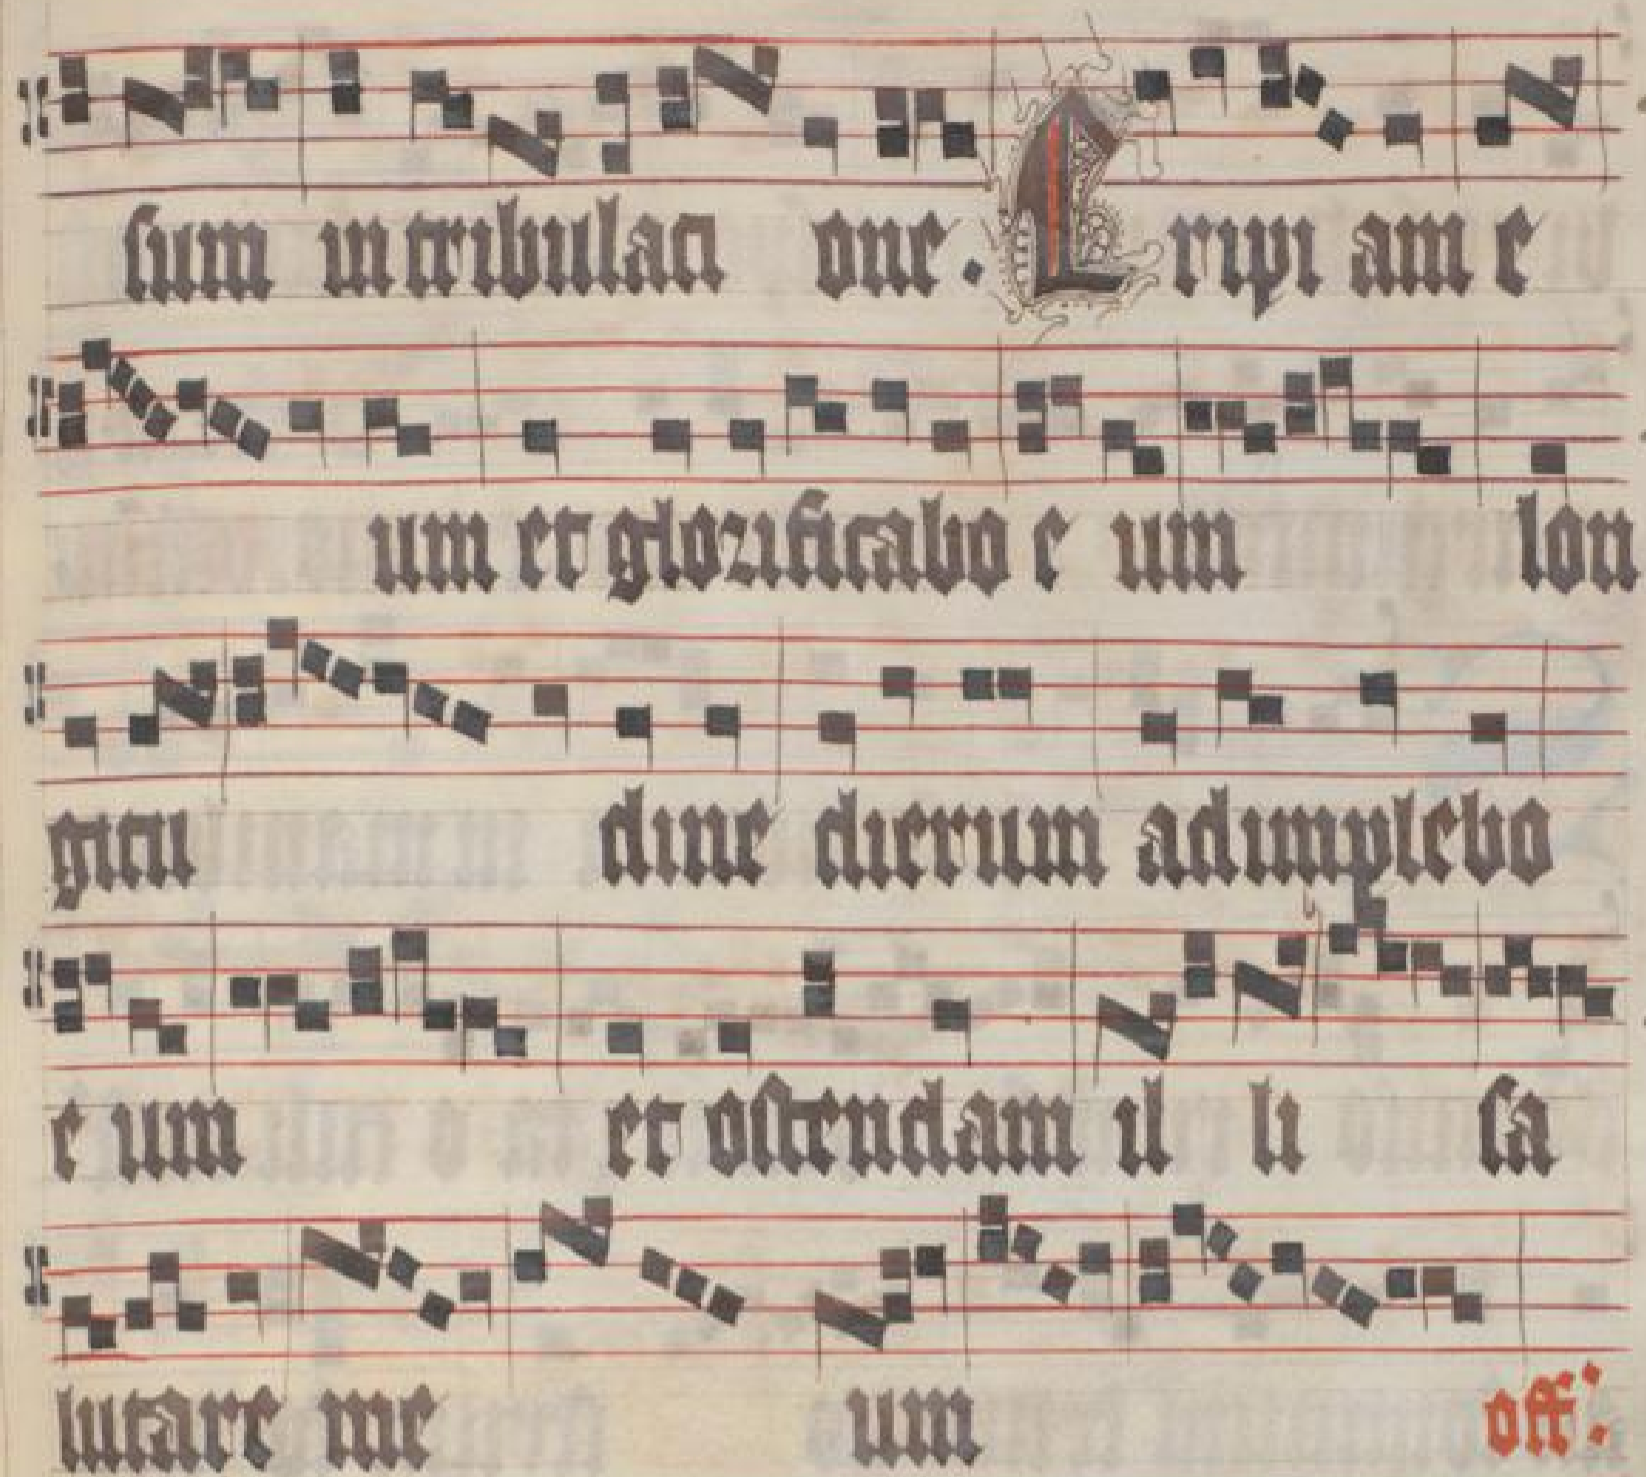 sum in tribulati one. Eripi am e
um et glorificabo e um lon
gitu dine dierum adimplebo
e um et ostendam il li sa
lutare me um off: